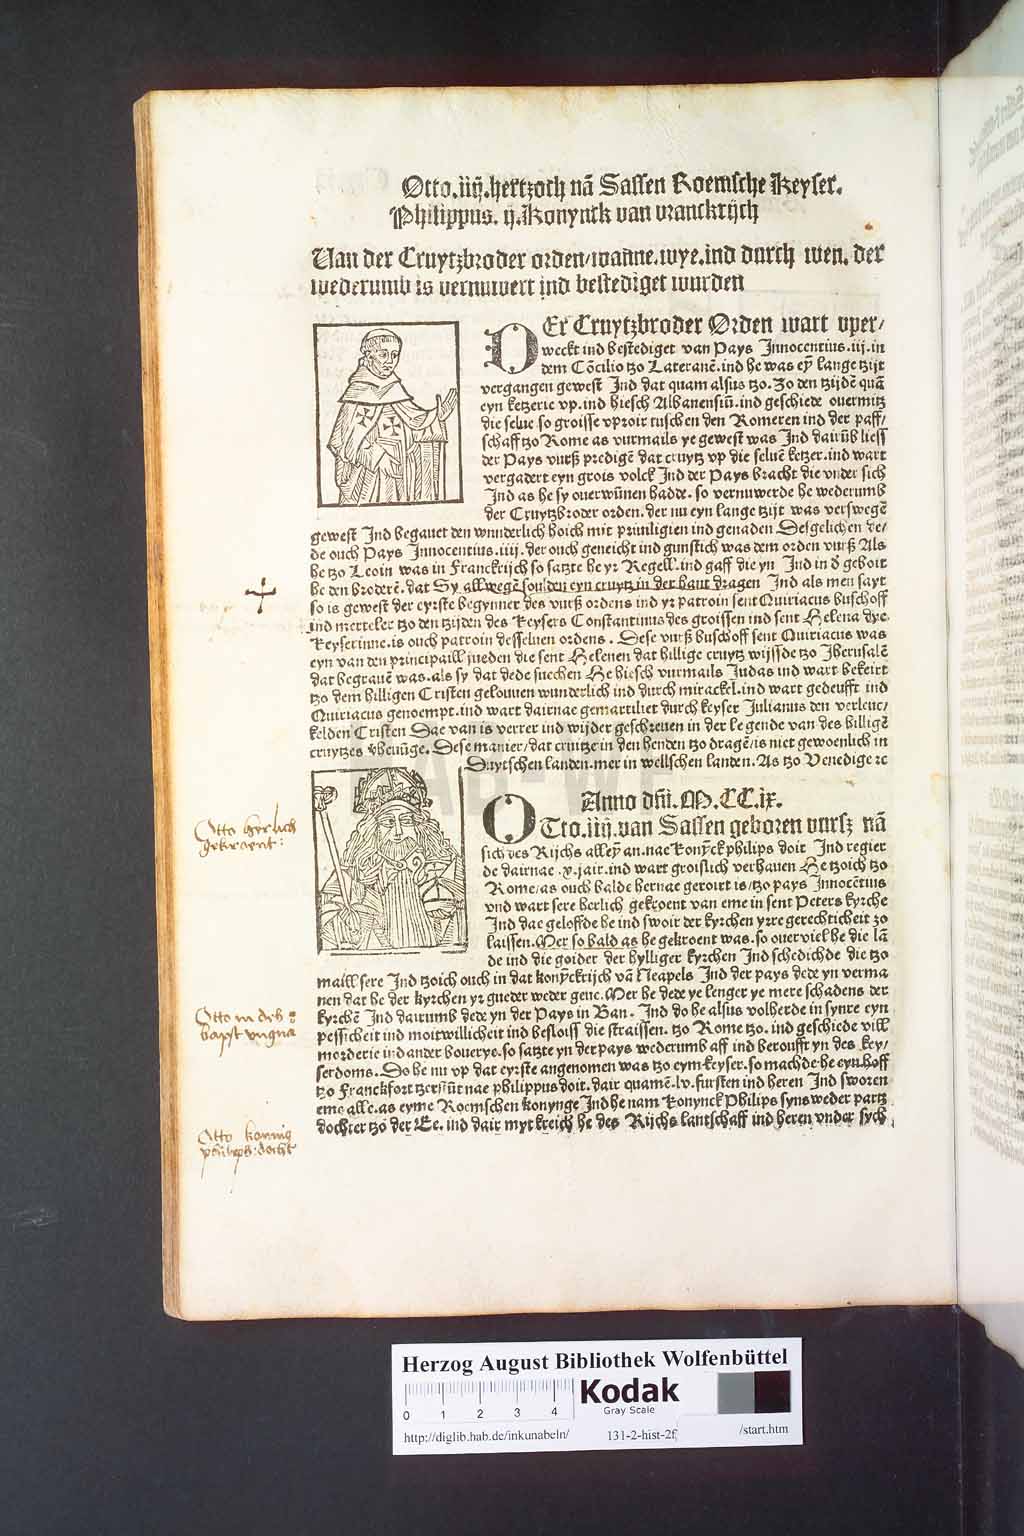 Otto.iiij.hertzoch nã Sassen Roemsche Keyser.
Philippus. ij.Konynck van vranckrijch
Uan der Cruytzbroder orden/wanne.wye.ind durch wen. der
wederumb is vernuwert ind bestediget wurden
DEr Cruytzbroder Orden wart vper/
weckt ind bestediget van Pays Innocentius.iij.in
dem Cõcilio tzo Lateranẽ.ind he was eyn lange tzijt
vergangen gewest Ind dat quam alsus tzo. Zo den tzijdẽ quã
eyn ketzerie vp.ind hiesch Albanensiũ.ind geschiede ouermitz
die selue so groisse vproir tuschen den Romeren ind der paff/
schaff tzo Rome as vurmails ye gewest was Ind darũb liess
der Pays vurß predigẽ dat cruytz vp die seluẽ ketzer.ind wart
vergadert eyn grois volck Ind der Pays bracht die vnder sich
Ind as he sy ouerwũnen hadde. so vernuwerde he wederumb
der Cruytzbroder orden. der nu eyn lange tzijt was verswegẽ
gewest Ind begauet den wunderlich hoich mit priuiligien ind genaden Desgelichen de/
de ouch Pays Innocentius.iiij.der ouch geneicht ind gunstich was dem orden vurß Als
he tzo Leoin was in Franckrijch so satzte he yr Regell.ind gaff die yn Ind in d geboit
he den broderẽ.dat Sy allwegẽ soulden eyn cruytz in der hant dragen Ind als men sayt
so is gewest der eyrste begynner des vurß ordens ind yr patroin sent Quiriacus buschoff
ind merteler tzo den tzijden des Keysers Constantinus des groissen ind sent Helena dye
Keyserinne.is ouch patroin desseluen ordens. Dese vurß buschoff sent Quiriacus was
eyn van den principaill jueden die sent Helenen dat hillige cruytz wijssde tzo Jherusalẽ
dat begrauẽ was.als sy dat dede suechen He hiesch vurmails Iudas ind wart bekeirt
tzo dem hilligen Cristen gelouuen wunderlich ind durch mirackel.ind wart gedeufft ind
Quiriacus genoempt.ind wart dairnae gemartiliet durch keyser Julianus den verleuc/
kelden Cristen Dae van is verrer ind wijder geschreuen in der legende van des hilligẽ
cruytzes vheuũge. Dese manier/dat cruitze in den henden tzo dragẽ/is niet gewoenlich in
Duytschen landen.mer in wellschen landen. As tzo Venedige ꝛc
Anno dñi.M.CC.ix.
OTto.iiij.van Sassen geboren vursz nã
sich des Rijchs alleyn an.nae Konyck philips doit Ind regier
de dairnae .v.jair.ind wart groislich verhauen He tzoich tzo
Rome/as ouch balde hernae geroirt is/tzo pays Innocẽtius
vnd wart sere herlich gekroent van eme in sent Peters kyrche
Ind dae geloffde he ind swoir der kyrchen yrre gerechticheit zo
laissen.Mer so bald as he gekroent was.so ouerviel he die lã
de ind die goider der hylliger kyrchen Ind schedichde die tzo
maill sere Ind tzoich ouch in dat konyckrijch vã Neapels Ind der pays dede yn verma
nen dat he der kyrchen yr gueder weder geue.Mer he dede ye lenger ye mere schadens der
kyrchẽ Ind dairumb dede yn der Pays in Ban. Ind do he alsus volherde in synre eyn
pessicheit ind moitwillicheit ind besloiss die straissen. tzo Rome tzo. ind geschiede vill
morderie ind ander bouerye.so satzte yn der pays wederumb aff ind berouffr yn des key/
serdoms. Do he nu vp dat eyrste angenomen was tzo eym keyser.so machde he eyn hoff
tzo Franckfort tzerstũt nae philippus doit.dair quamẽ.lv.fursten ind heren Ind sworen
eme alle.as eyme Roemschen konynge Ind he nam Konynck Philips syns weder partz
dochter tzo der Ee. ind dair myt kreich he des Rijchs lantschaff ind heren vnder sych
Otto herlich
gekroent:
Otto in deß
bapst vngna
Otto konnig
philips: docht
Herzog August Bibliothek Wolfenbüttel
0 1 2 3 4
Kodak
Gray Scale
http://diglib.hab.de/inkunabeln/ 131-2-hist-2f, /start.htm